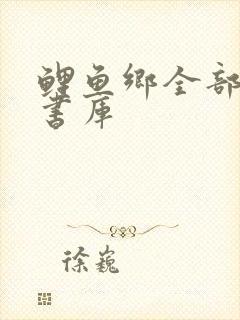 鲤鱼乡全部
书库
徐巍